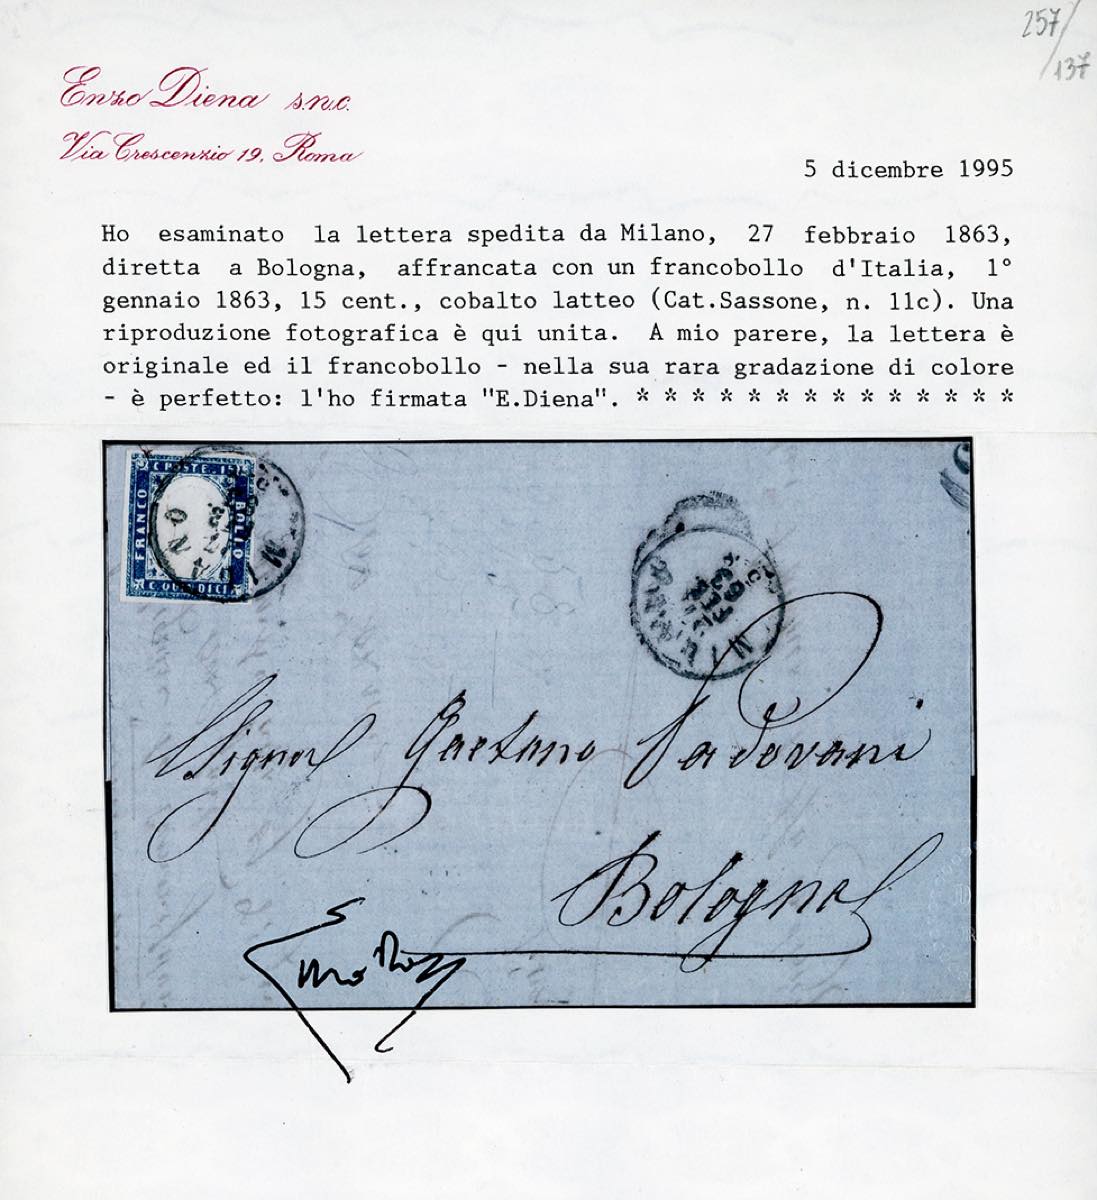 257/
137
Enzo Diena s.n.c.
Via Crescenzio 19, Roma
5 dicembre 1995
Ho esaminato la lettera spedita da Milano, 27 febbraio 1863,
diretta a Bologna, affrancata con un francobollo d'Italia, 1°
gennaio 1863, 15 cent., cobalto latteo (Cat.Sassone, n. 11c). Una
riproduzione fotografica è qui unita. A mio parere, la lettera è
originale ed il francobollo - nella sua rara gradazione di colore
- è perfetto: l'ho firmata "E.Diena". * * * * * * * * * * * * * *
C POSTE 15
FRANCO
BOLLO
C QUINDICI
MILANO
MILANO
Signor Gaetano Padovani
Bologna